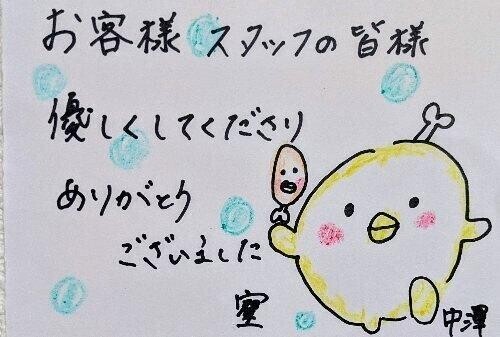 お客様 スタッフの皆様
優しくしてくださり
ありがとう
ございました
室
中澤